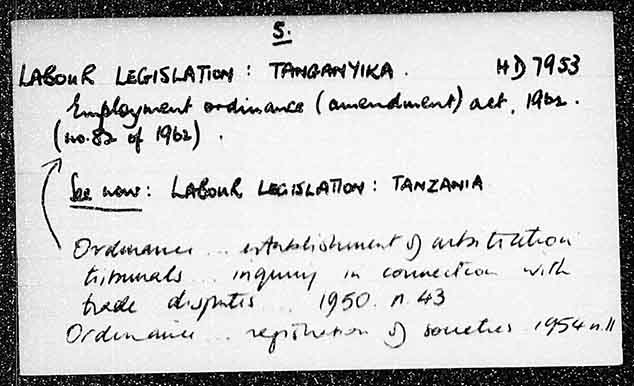 5.
LABOUR LEGISLATION: TANGANYIKA. HD 7953
Employment ordinance (amendment) act, 1962.
(no. 82 of 1962).
See now: LABOUR LEGISLATION: TANZANIA
Ordinance... establishment of arbitration
tribunals... inquiry in connection with
trade disputes... 1950. n. 43
Ordinance... registration of societies 1954 n. 11